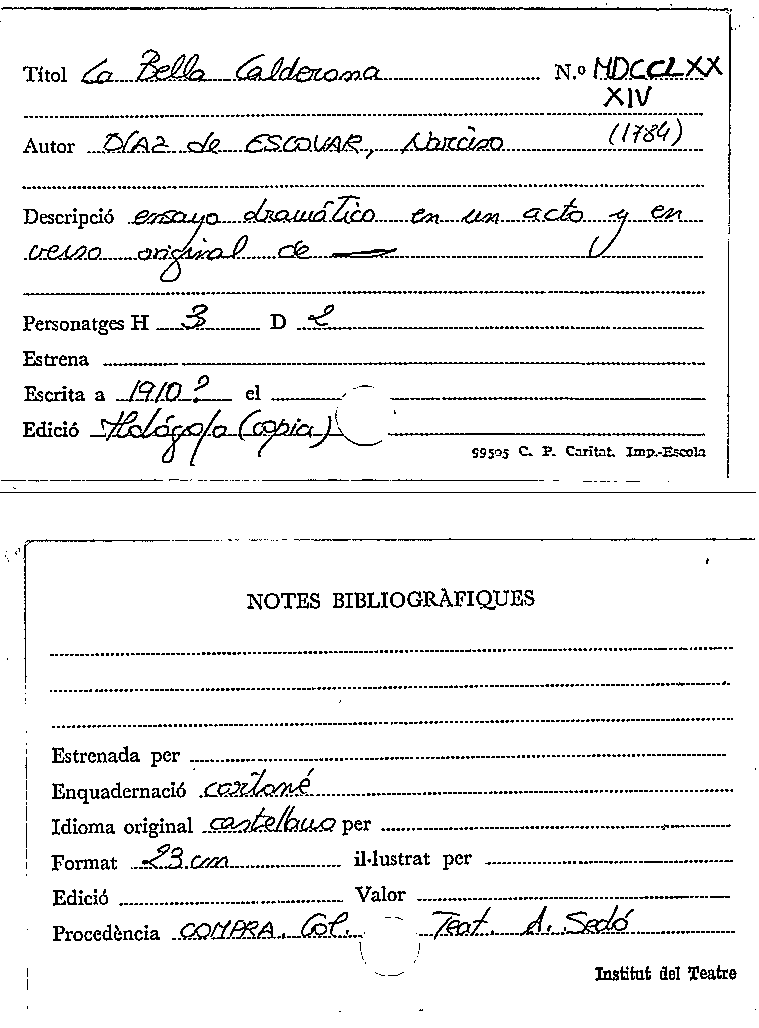 Títol La Bella Calderona N.º MDCCLXX
XIV
Autor DÍAZ de ESCOVAR, Narciso (1784)
Descripció ensayo dramático en un acto y en
verso original de —
Personatges H 3 D 2
Estrena
Escrita a 1910? el
Edició Hológrafo (copia)
99505 C. P. Caritat. Imp.-Escola
NOTES BIBLIOGRÀFIQUES
Estrenada per
Enquadernació cartoné
Idioma original castellano per
Format 23 cm il·lustrat per
Edició Valor
Procedència COMPRA. Col. Teat. A. Sedó
Institut del Teatre